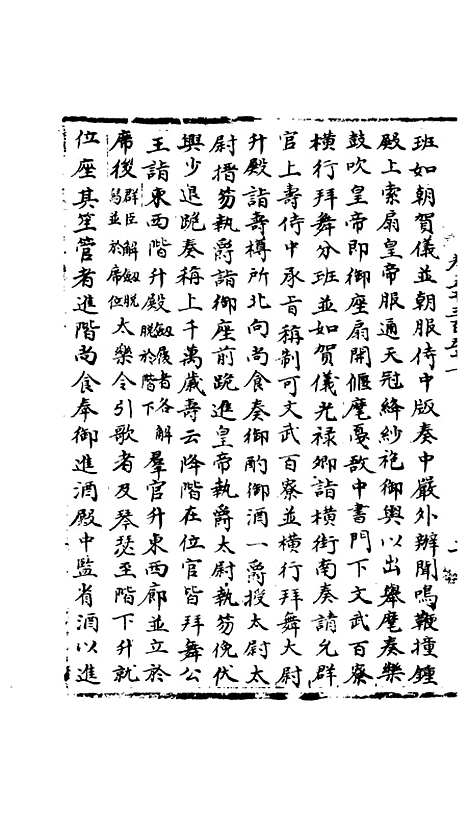 班如朝賀儀並朝服侍中版奏中嚴外辦開鳴鞭撞鍾
殿上索扇皇帝服通天冠絳紗袍御輿以出舉麾奏樂
鼓吹皇帝即御座扇開偃麾戞敔中書門下文武百寮
橫行拜舞分班並如賀儀光祿卿詣橫街南奏請允群
官上壽侍中承旨稱制可文武百寮並橫行拜舞太尉
升殿詣壽樽所北向尚食奏御酌御酒一爵授太尉太
尉搢笏執爵詣御座前跪進皇帝執爵太尉執笏俛伏
興少退跪奏稱上千萬歲壽云降階在位官皆拜舞公
王詣東西階升殿劔履者各解脱於階下羣官升東西廊並立於
席後群臣解劔脱舄並於席位太樂令引歌者及琴瑟至階下升就
位座其笙管者進階尚食奉御進酒殿中監省酒以進